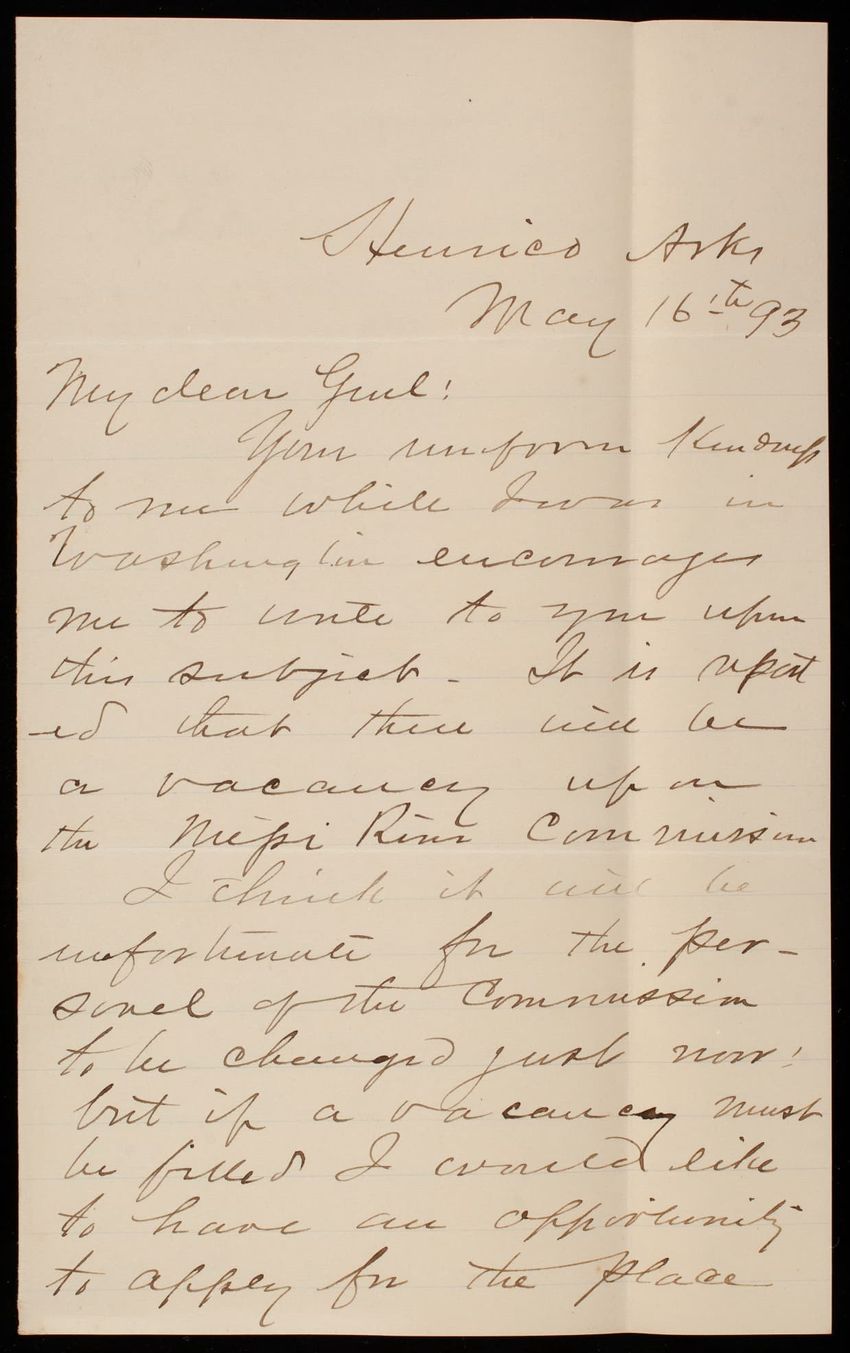 Henrico Arks
May 16th 93
My dear Genl:
Your uniform Kindness
to me while I was in
Washington encourages
me to write to you upon
this subject - It is report
-ed that there will be
a vacancy upon
the Missi River Commission
I think it will be
unfortunate for the per-
sonel of the Commission
to be changed just now:
but if a vacancy must
be filled I would like
to have an opportunity
to apply for the place